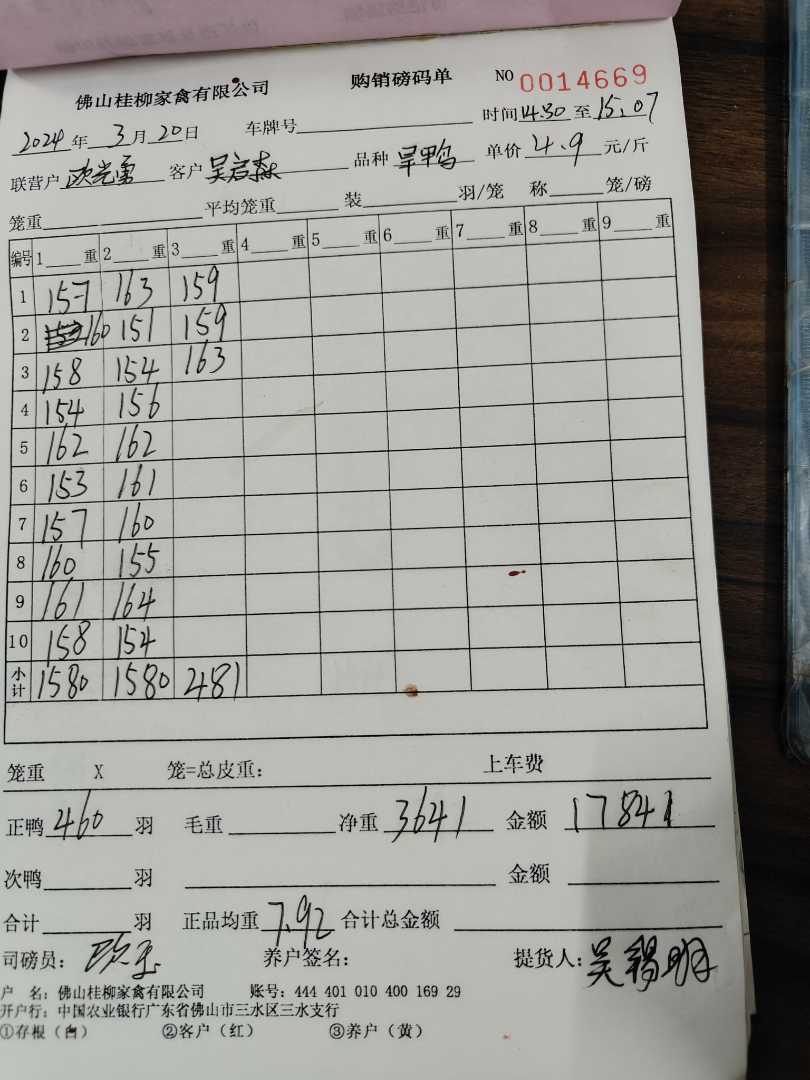 佛山桂柳家禽有限公司 购销磅码单 NO 0014669
2024年 3月 20日 车牌号 时间 14.30 至 15.07
联营户 欧光勇 客户 吴启森 品种 旱鸭 单价 4.9 元/斤
笼重 平均笼重 装 羽/笼 称 笼/磅
编号 1 重 2 重 3 重 4 重 5 重 6 重 7 重 8 重 9 重
1 157 163 159
2 160 151 159
3 158 154 163
4 154 156
5 162 162
6 153 161
7 157 160
8 160 155
9 161 164
10 158 154
小计 1580 1580 481
笼重 X 笼=总皮重: 上车费
正鸭 460 羽 毛重 净重 3641 金额 17841
次鸭 羽 金额
合计 羽 正品均重 7.92 合计总金额
司磅员: 养户签名: 提货人: 吴锡明
户 名: 佛山桂柳家禽有限公司 账号: 444 401 010 400 169 29
开户行: 中国农业银行广东省佛山市三水区三水支行
①存根(白) ②客户(红) ③养户(黄)